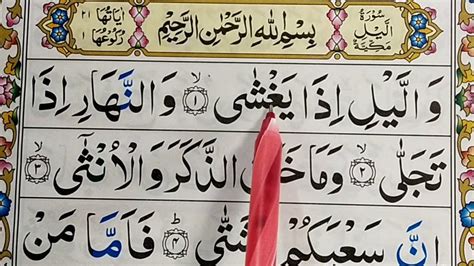 سُوْرَةُ الَّيْلِ مَكِّيَّةٌ
بِسْمِ اللهِ الرَّحْمٰنِ الرَّحِيْمِ
اٰيَاتُهَا ٢١ رُكُوْعُهَا ١
وَالَّيْلِ اِذَا يَغْشٰى ۙ﴿١﴾ وَالنَّهَارِ اِذَا
تَجَلّٰى ۙ﴿٢﴾ وَمَا خَلَقَ الذَّكَرَ وَالْاُنْثٰٓى ۙ﴿٣﴾
اِنَّ سَعْيَكُمْ لَشَتّٰى ؕ﴿٤﴾ فَاَمَّا مَنْ